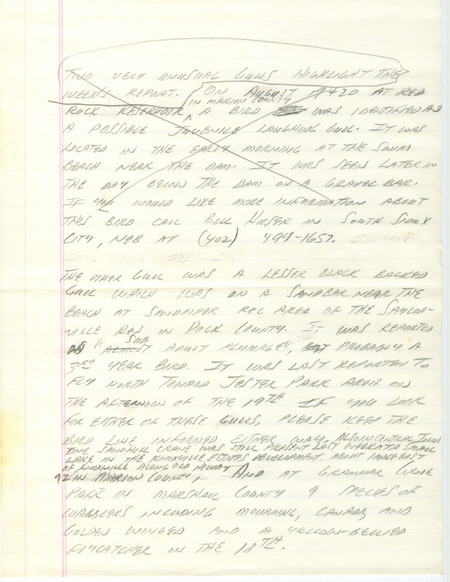 TWO VERY UNUSUAL GULLS HIGHLIGHT THE
WEEK'S REPORT. ON AUGUST 19 & 20 AT RED
IN MARION COUNTY
ROCK RESERVOIR A BIRD WAS IDENTIFIED AS
A POSSIBLE JUVENILE LAUGHING GULL. IT WAS
LOCATED IN THE EARLY MORNING AT THE SWIM
BEACH NEAR THE DAM. IT WAS SEEN LATER IN
THE DAY BELOW THE DAM ON A GRAVEL BAR.
IF YOU WOULD LIKE MORE INFORMATION ABOUT
THIS BIRD CALL BILL HUSER IN SOUTH SIOUX
CITY, NEB AT (402) 494-1657.
THE OTHER GULL WAS A LESSER BLACK BACKED
GULL WHICH WAS ON A SANDBAR NEAR THE
BEACH AT SANDPIPER REC AREA OF THE SAYLOR-
VILLE RES IN POLK COUNTY. IT WAS REPORTED
ADULT PLUMAGE, PROBABLY A
3RD YEAR BIRD. IT WAS LAST REPORTED TO
FLY NORTH TOWARD JESTER PARK AREA ON
THE AFTERNOON OF THE 19TH. IF YOU LOOK
FOR EITHER OF THESE GULLS, PLEASE KEEP THE
BIRD LINE INFORMED EITHER WAY. ALSO IN CENTRAL IOWA
THE SANDHILL CRANE WAS STILL PRESENT LAST WEEK AT SMALL
LAKE IN THE KNOXVILLE ESTATES DEVELOPMENT ABOUT
OF KNOXVILLE ALONG OLD HIGHWAY
92 IN MARION COUNTY, AND AT GRAMMER GROVE
PARK IN MARSHALL COUNTY 9 SPECIES OF
WARBLERS INCLUDING MOURNING, CANADA, AND
GOLDEN WINGED AND A YELLOW-BELLIED
FLYCATCHER ON THE 18TH.